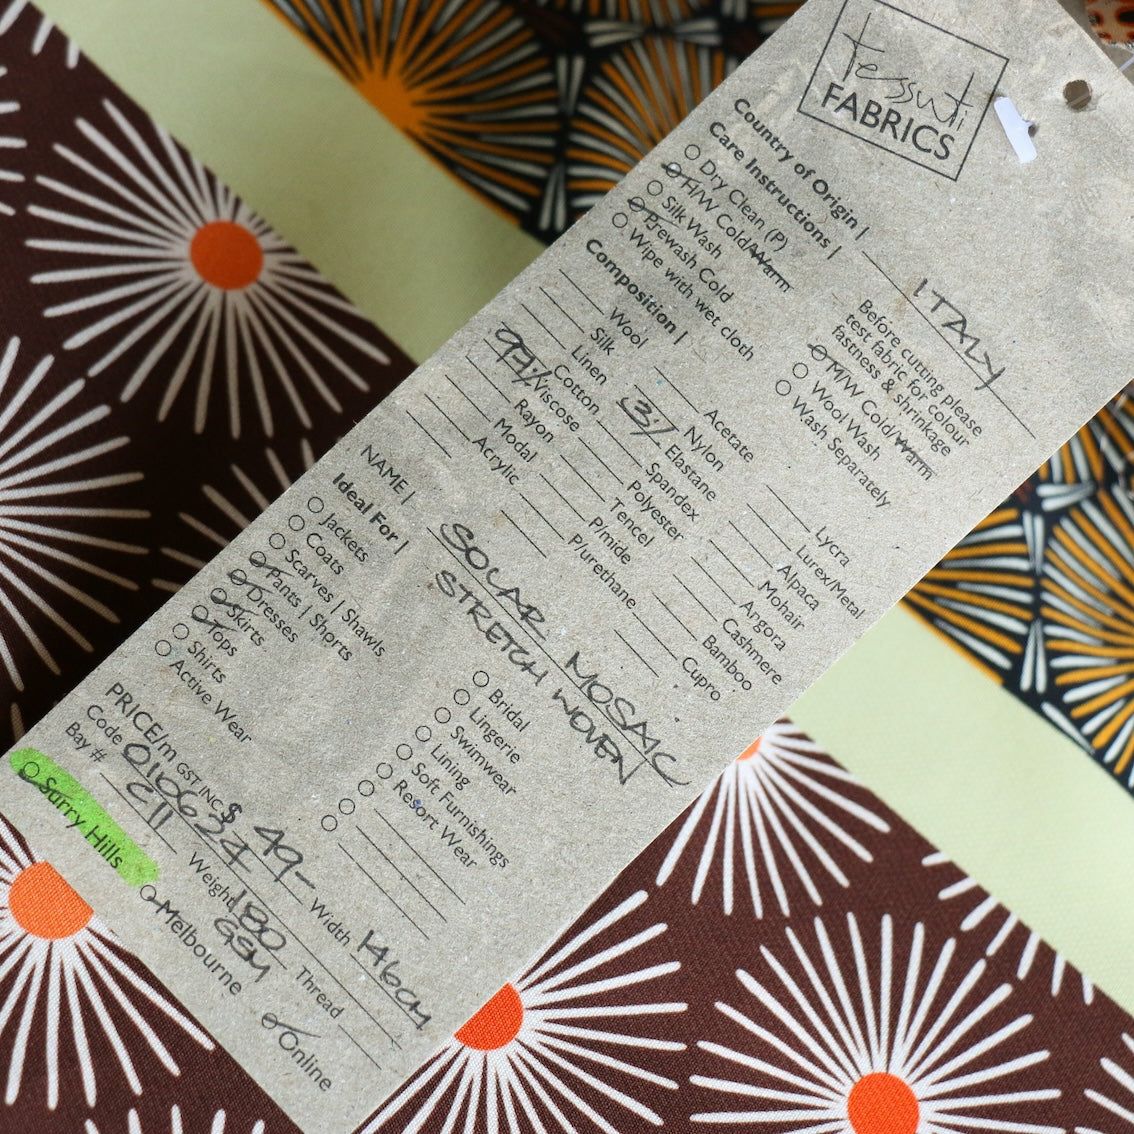 tessuti
FABRICS
Country of Origin | ITALY
Care Instructions |
Dry Clean (P)
H/W Cold/Warm
Silk Wash
Prewash Cold
Wipe with wet cloth
Before cutting please
test fabric for colour
fastness & shrinkage
M/W Cold/Warm
Wool Wash
Wash Separately
Composition |
Wool
Silk
Linen
Cotton
97% Viscose
Rayon
Modal
Acrylic
Acetate
Nylon
3% Elastane
Spandex
Polyester
Tencel
P/mide
P/urethane
Lycra
Lurex/Metal
Alpaca
Mohair
Angora
Cashmere
Bamboo
Cupro
NAME | SOLAR MOSAIC
STRETCH WOVEN
Ideal For |
Jackets
Coats
Scarves | Shawls
Pants | Shorts
Dresses
Skirts
Tops
Shirts
Active Wear
Bridal
Lingerie
Swimwear
Lining
Soft Furnishings
Resort Wear
PRICE/m GST INC $ 49- Width 146cm
Code 0110627 Weight 180 GSM Thread
Bay # C11
Surry Hills
Melbourne
Online